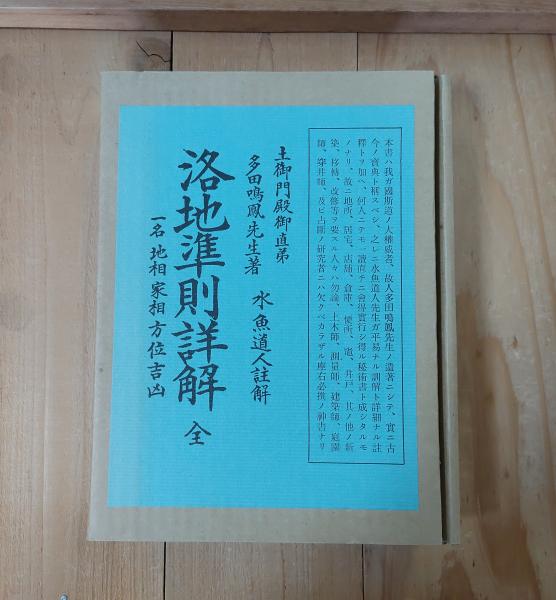 本書ハ我ガ國斯道ノ大權威者、故人多田鳴鳳先生ノ遺著ニシテ、實ニ古
今ノ寶典ト稱スベシ、之レニ水魚道人先生ガ平易ナル訓解ト詳細ナル註
釋トヲ加ヘ、何人ニテモ一讀直チニ會得實行シ得ル秘術書ト成シタルモ
ノナリ、故ニ地所、居宅、店舗、倉庫、便所、竈、井戸、其ノ他ノ新
築、移轉、改修等ヲ要スル人々ハ勿論、土木師、測量師、建築師、庭園
師、穿井師、及ビ占斷ノ研究者ニハ欠クベカラザル座右必携ノ神書ナリ
土御門殿御直弟
多田鳴鳳先生著
水魚道人註解
洛地準則詳解 全
一名 地相家相方位吉凶